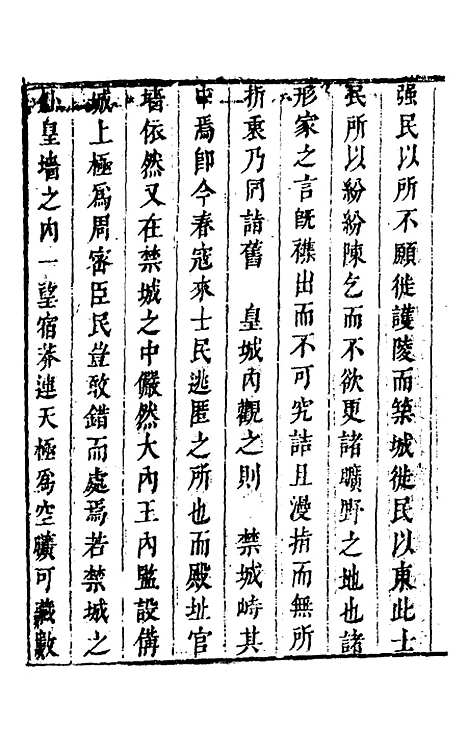 强民以所不願徙護陵而築城徙民以東此士
民所以紛紛陳乞而不欲更諸曠野之地也諸
形家之言旣襍出而不可究詰且漫揹而無所
折衷乃同詣舊　皇城內觀之則　禁城峙其
中焉卽今春寇來士民逃匿之所也而殿址宮
墻依然又在禁城之中儼然大內王內監設備
城上極爲周密臣民豈敢錯而處焉若禁城之
外皇墻之內一望宿莽連天極爲空曠可藏數